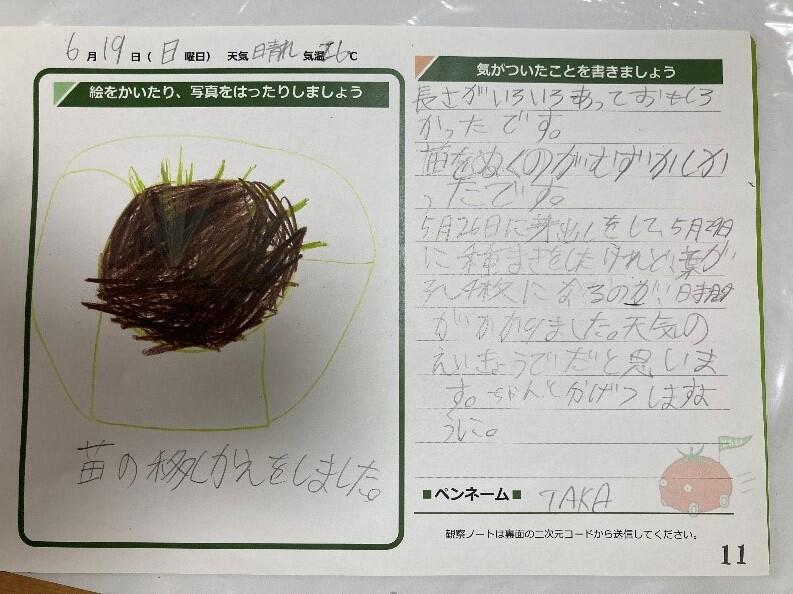 6月19日(日曜日) 天気 晴れ 気温26℃
絵をかいたり、写真をはったりしましょう
苗の移しかえをしました。
気がついたことを書きましょう
長さがいろいろあっておもしろ
かったです。
苗をぬくのがむずかしか
ったです。
5月26日に芽出しをして、5月29日
に種まきをしたけれど、葉が
3、4枚になるのが、時間
がかかりました。天気の
えいきょうでだと思いま
す。ちゃんとかげつしますよ
うに。
■ペンネーム■ TAKA
観察ノートは裏面の二次元コードから送信してください。
11